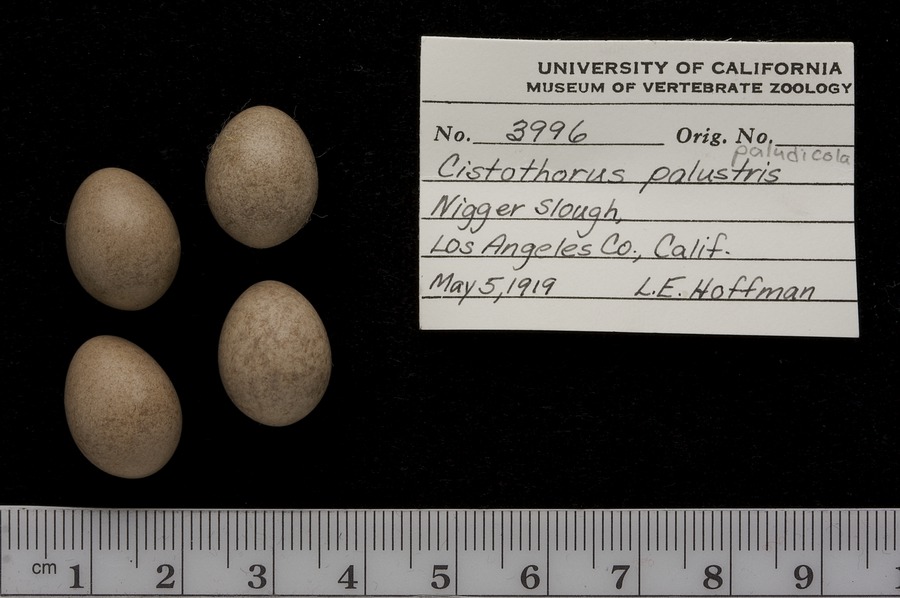 UNIVERSITY OF CALIFORNIA
MUSEUM OF VERTEBRATE ZOOLOGY
No. 3996 Orig. No.
paludicola
Cistothorus palustris
Nigger Slough,
Los Angeles Co., Calif.
May 5, 1919 L.E. Hoffman
cm 1 2 3 4 5 6 7 8 9 1